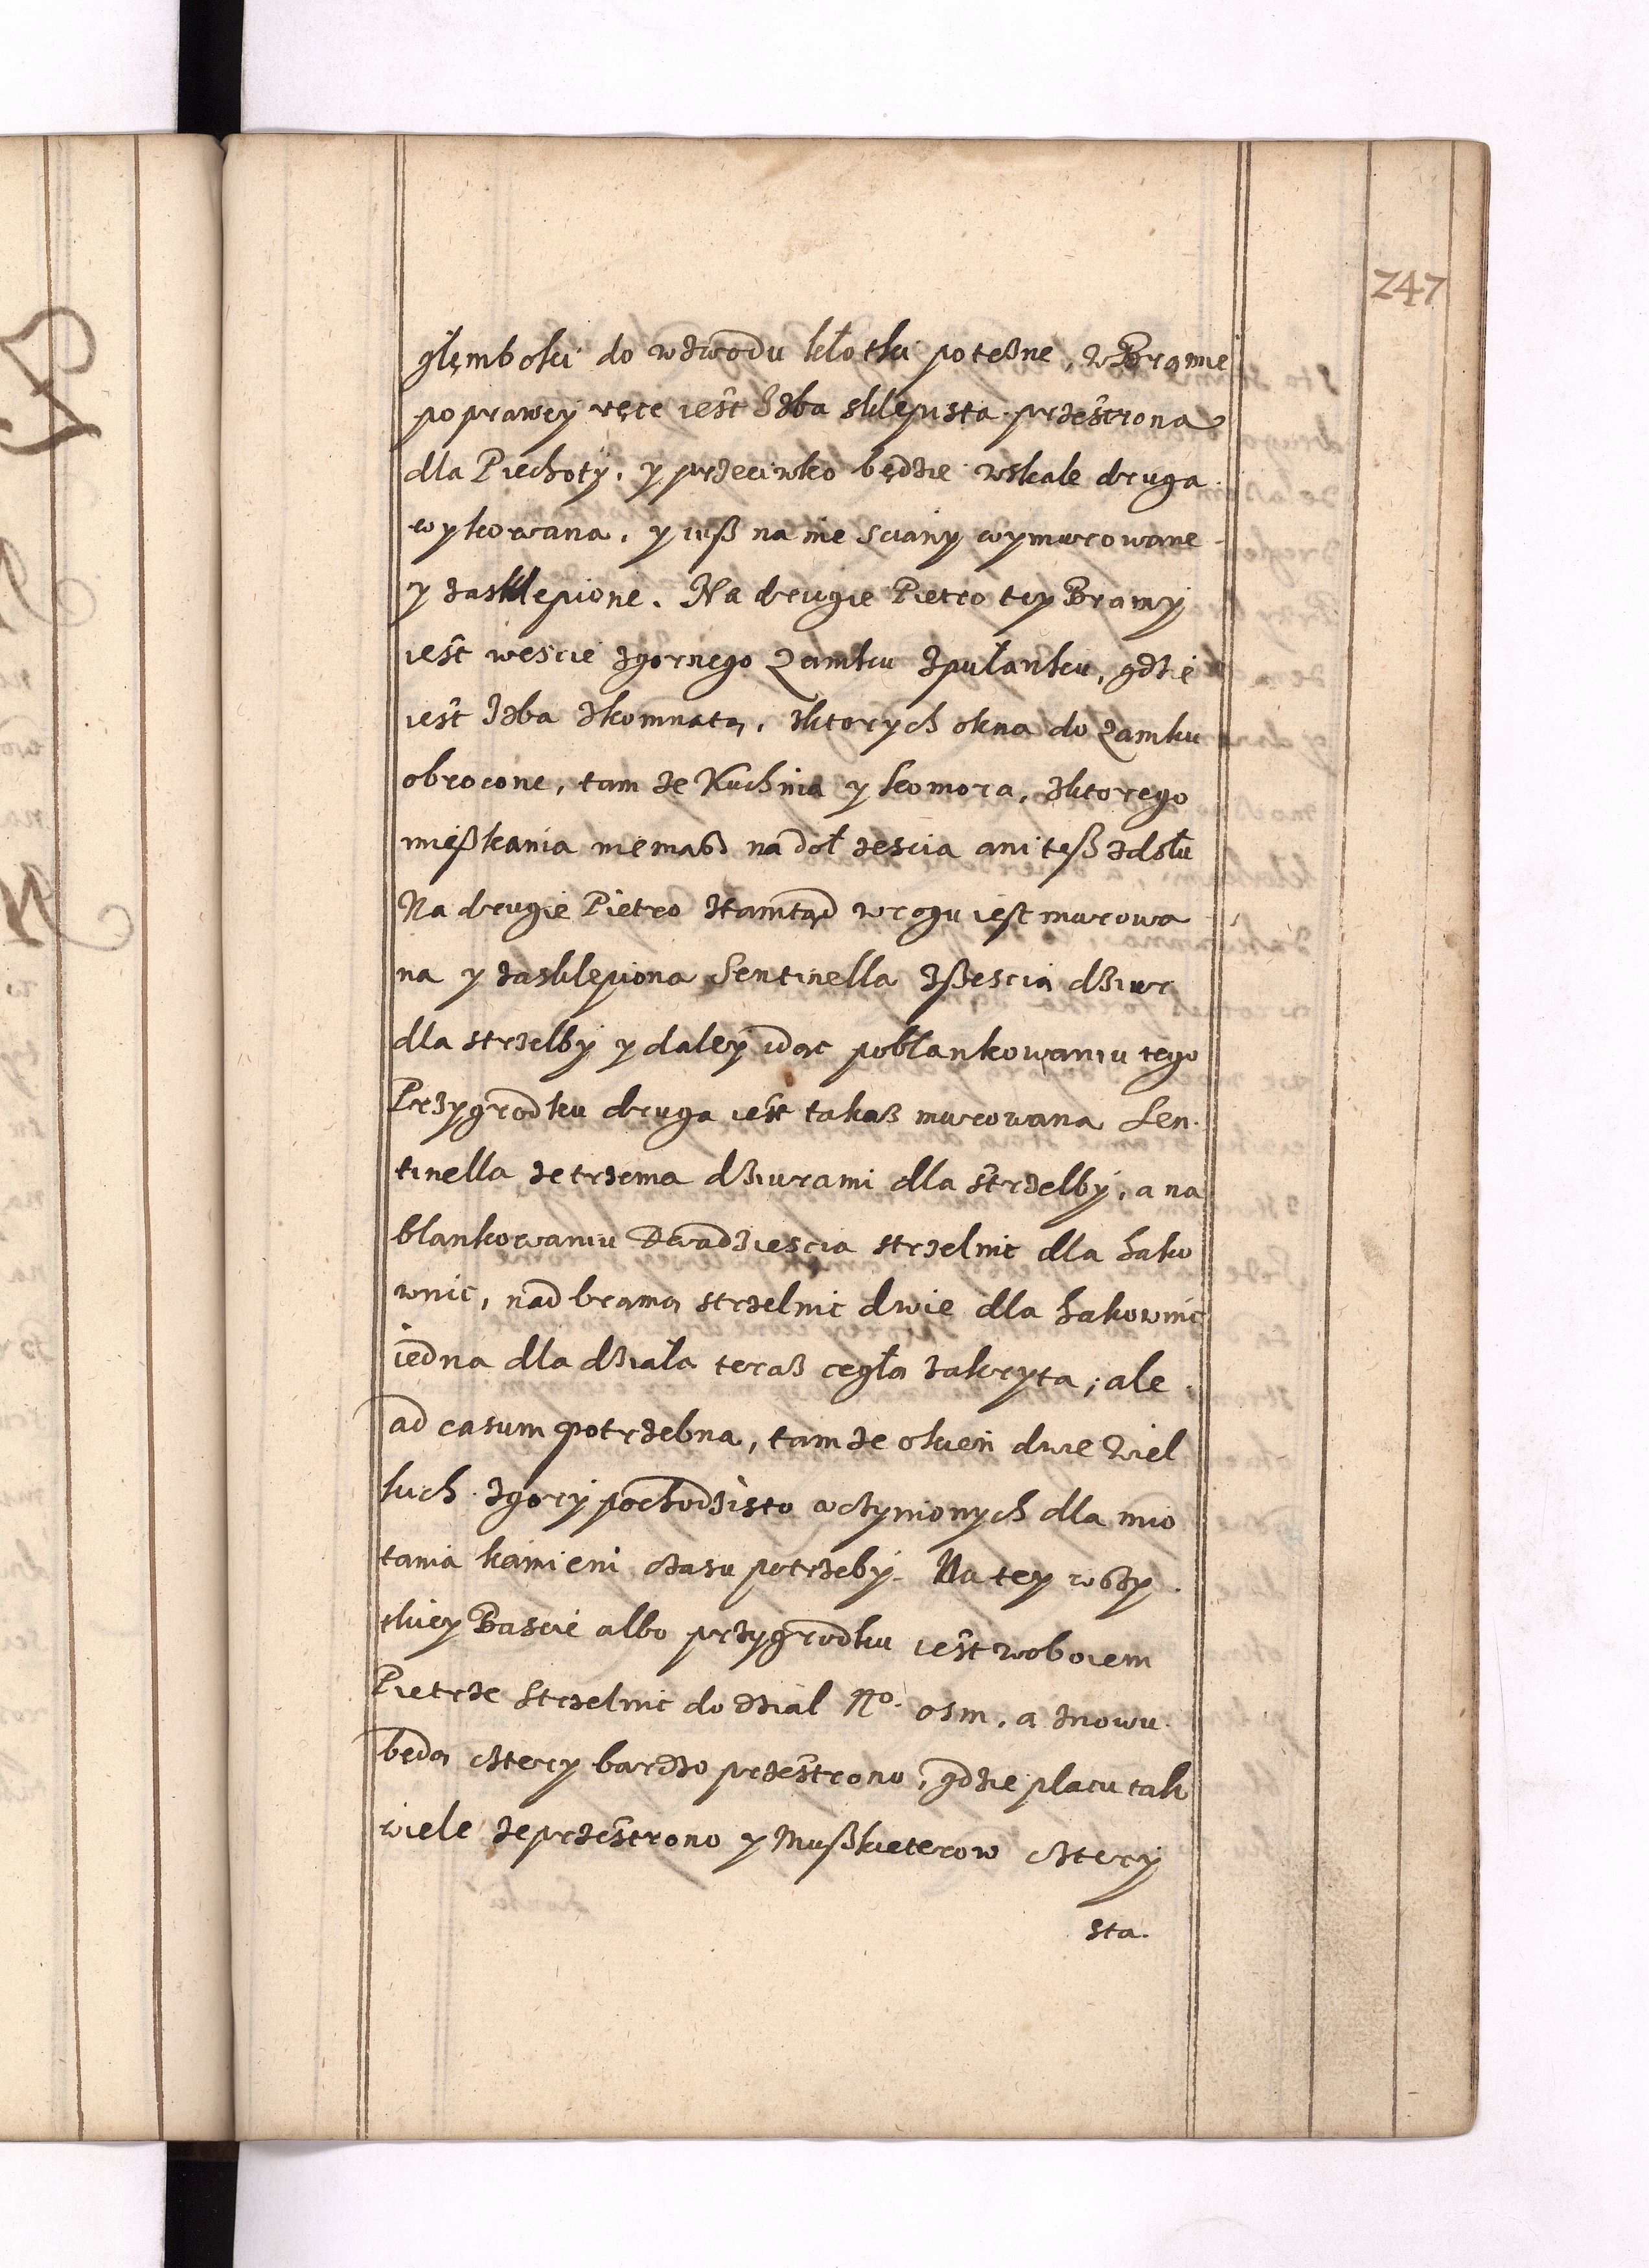 247
głęmboki do wzwodu kłotki potężne, w Bramie
po prawey ręce iest Izba sklepista przestrona
dla Piechoty, y przeciwko będzie wskale druga
wykowana, y iusz na nie sciany wymurowane
y zasklepione. Na drugie Pietro tey Bramy
iest weście zgornego Zamku zpułanku, gdzie
iest Izba zkomnatą, zktorych okna do Zamku
obrocone, tam ze Kuchnia y komora, zktorego
mięszkania niemasz na doł zescia ani tesz zdołu
Na drugie Pietro ztamtąd wrogu iest murowa
na y zasklepiona Sentinella zszescią dziur
dla strzelby y daley idąc poblankowaniu tego
Przygrodku druga iest takaz murowana Sen
tinella zetrzema dziurami dla strzelby, a na
blankowaniu dwadziescia strzelnic dla hako
wnic, nad bramą strzelnic dwie dla hakownic
iedna dla dziala teraz cegłą zakryta, ale
ad casum potrzebna, tamze okien dwie wiel
kich zgory pochodzisto uczynionych dla mio
tania kamieni czasu potrzeby. Na tey wszy
tkiey Bascie albo przygrodku iest woboiem
Pietrze Strzelnic do dzial No. osm, a znowu
będą cztery bardzo przestrono, gdzie placu tak
wiele ze przestrono y Muszkieterow cztery
sta.